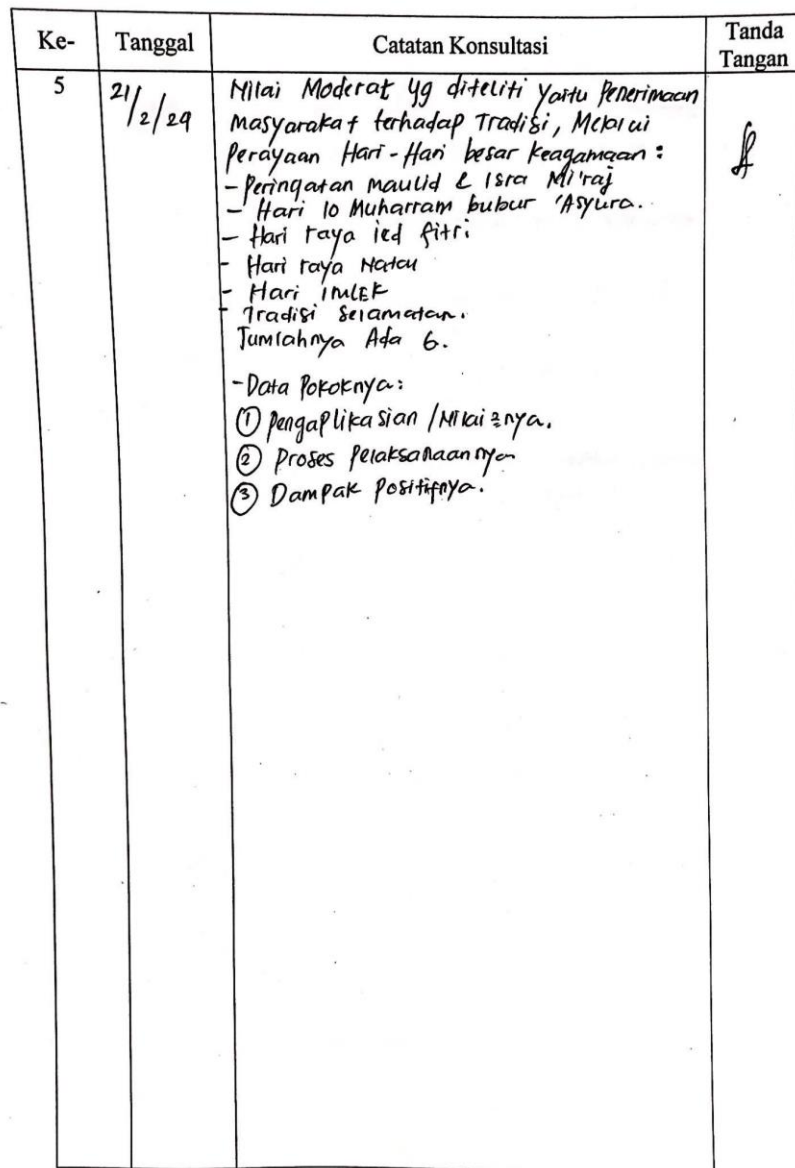 Ke- Tanggal Catatan Konsultasi Tanda Tangan
5 21/2/24 Nilai Moderat yg diteliti yaitu Penerimaan
masyarakat terhadap Tradisi, Melalui
Perayaan Hari-Hari besar keagamaan :
- Peringatan maulid & Isra Mi'raj
- Hari 10 Muharram bubur 'Asyura.
- Hari raya ied fitri
- Hari raya Natal
- Hari IMLEK
- Tradisi Selamatan.
Jumlahnya Ada 6.
- Data Pokoknya:
① Pengaplikasian / Nilai2nya.
② Proses Pelaksanaannya
③ Dampak Positifnya.